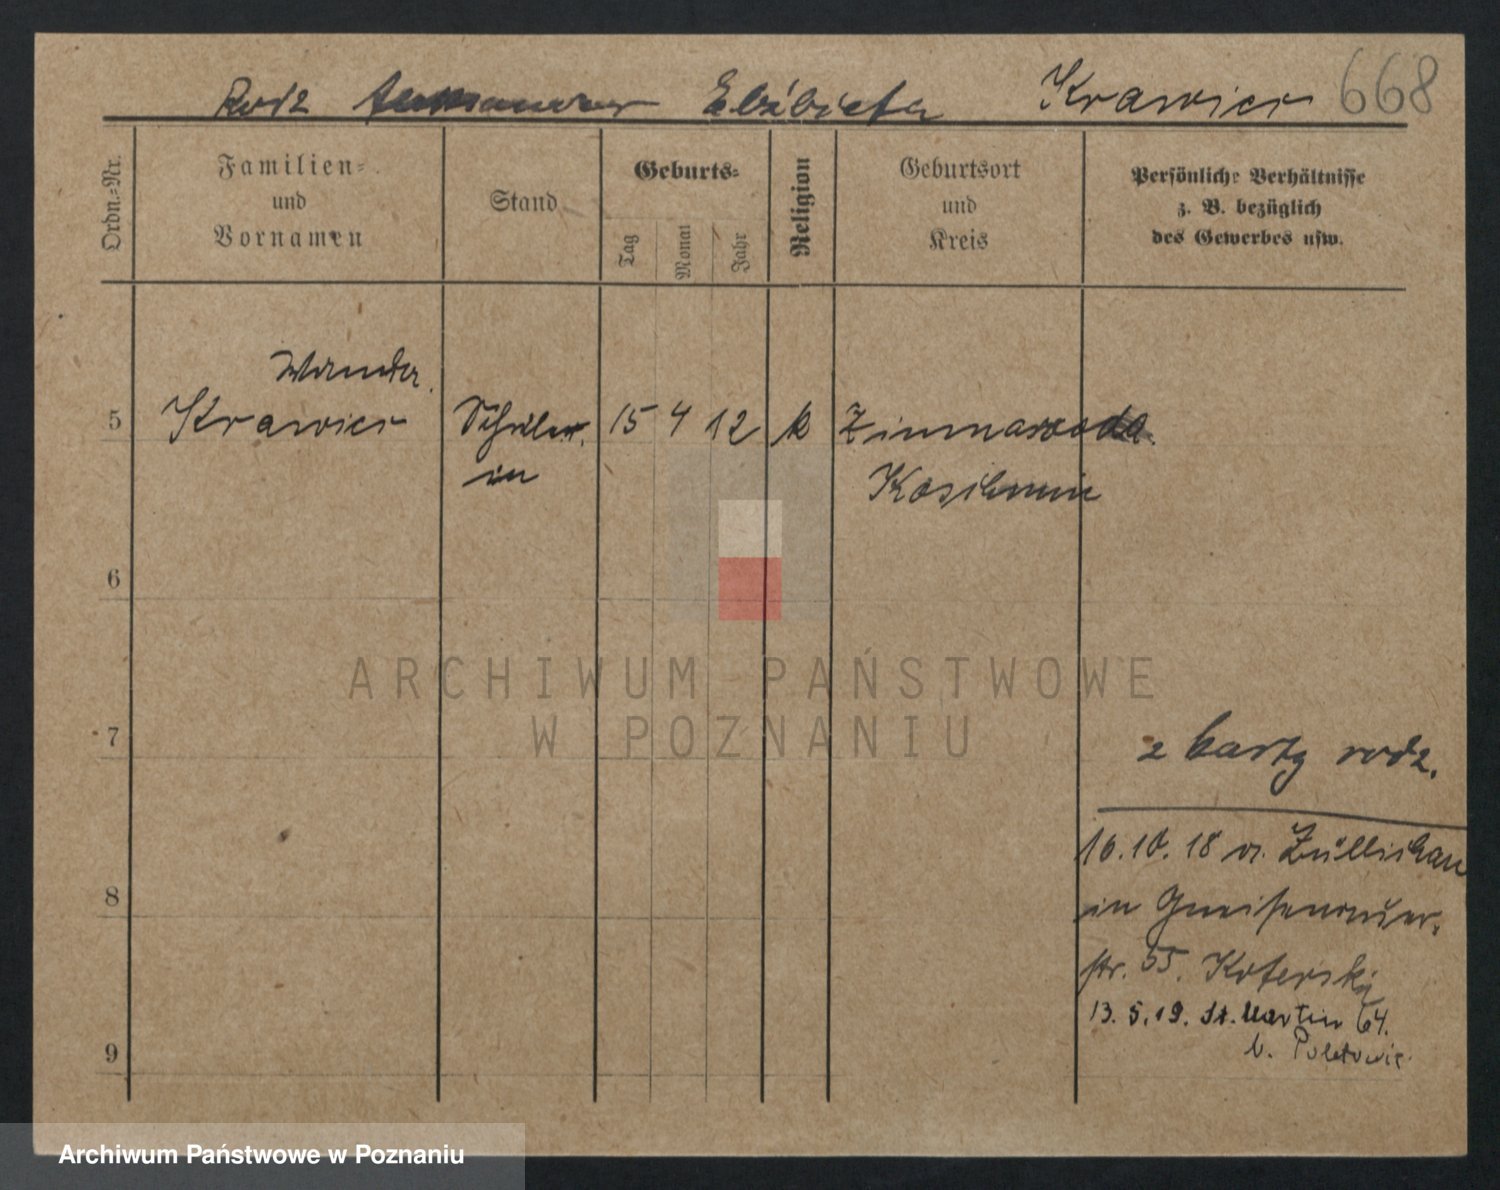 Rodz Elżbieta Krawiec 668
Ordn.-Nr.
Familien-
und
Vornamen
Stand
Geburts-
Tag
Monat
Jahr
Religion
Geburtsort
und
Kreis
Persönliche Verhältnisse
z. B. bezüglich
des Gewerbes usw.
Wanda
5 Krawiec Schüler. 15 4 12 k Zimnawoda.
in Koschmin
6
ARCHIWUM PAŃSTWOWE
W POZNANIU
7
z karty rodz.
16.10.18 v. Züllichau
8
in Gneisenauer-
str. 55. Koferski
13.5.19. St. Martin 64.
b.
9
Archiwum Państwowe w Poznaniu